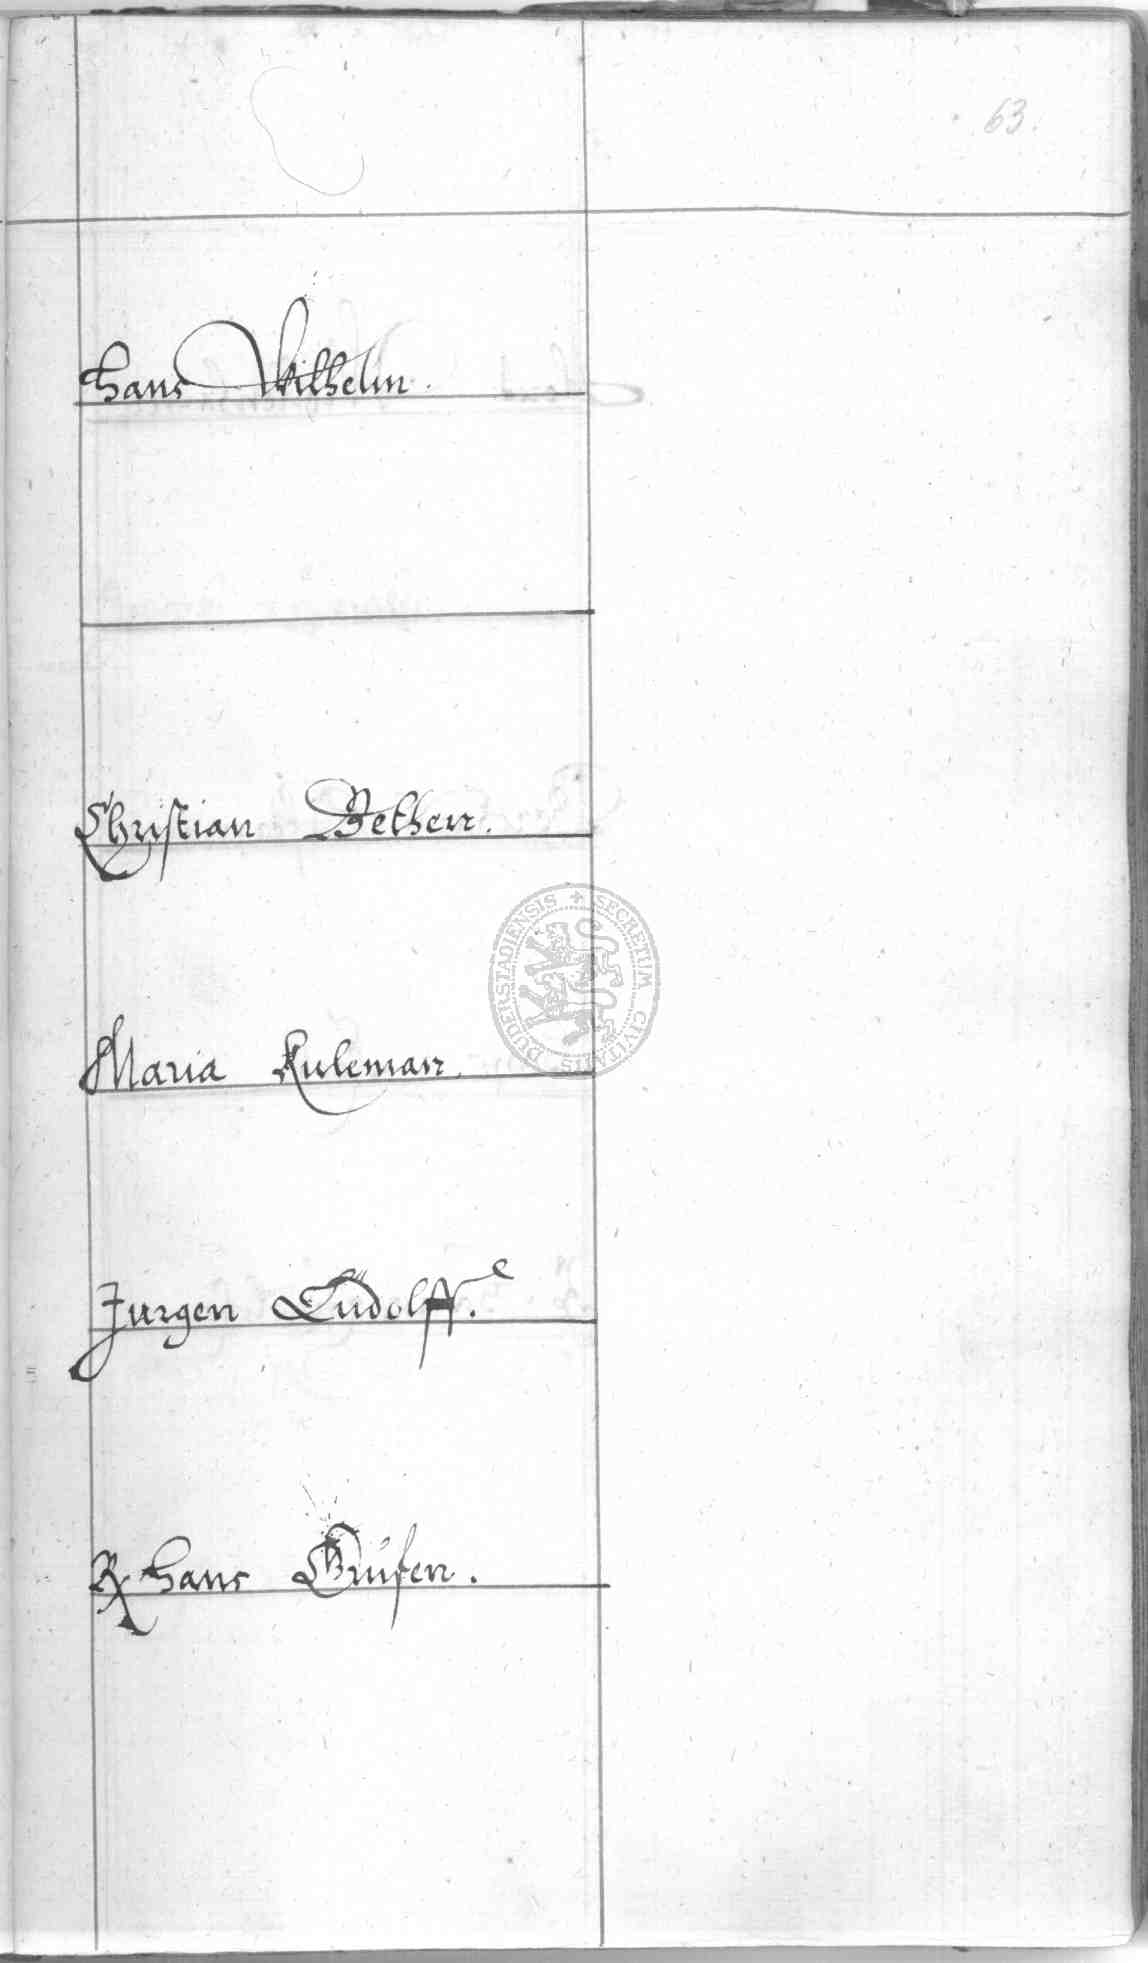 63.
Hans Wilhelm.
Christian Bethen.
DUDERSTADIENSIS + SECRETUM CIVITATIS
Maria Kuleman.
Jurgen Ludolff.e
Hans Grusen.